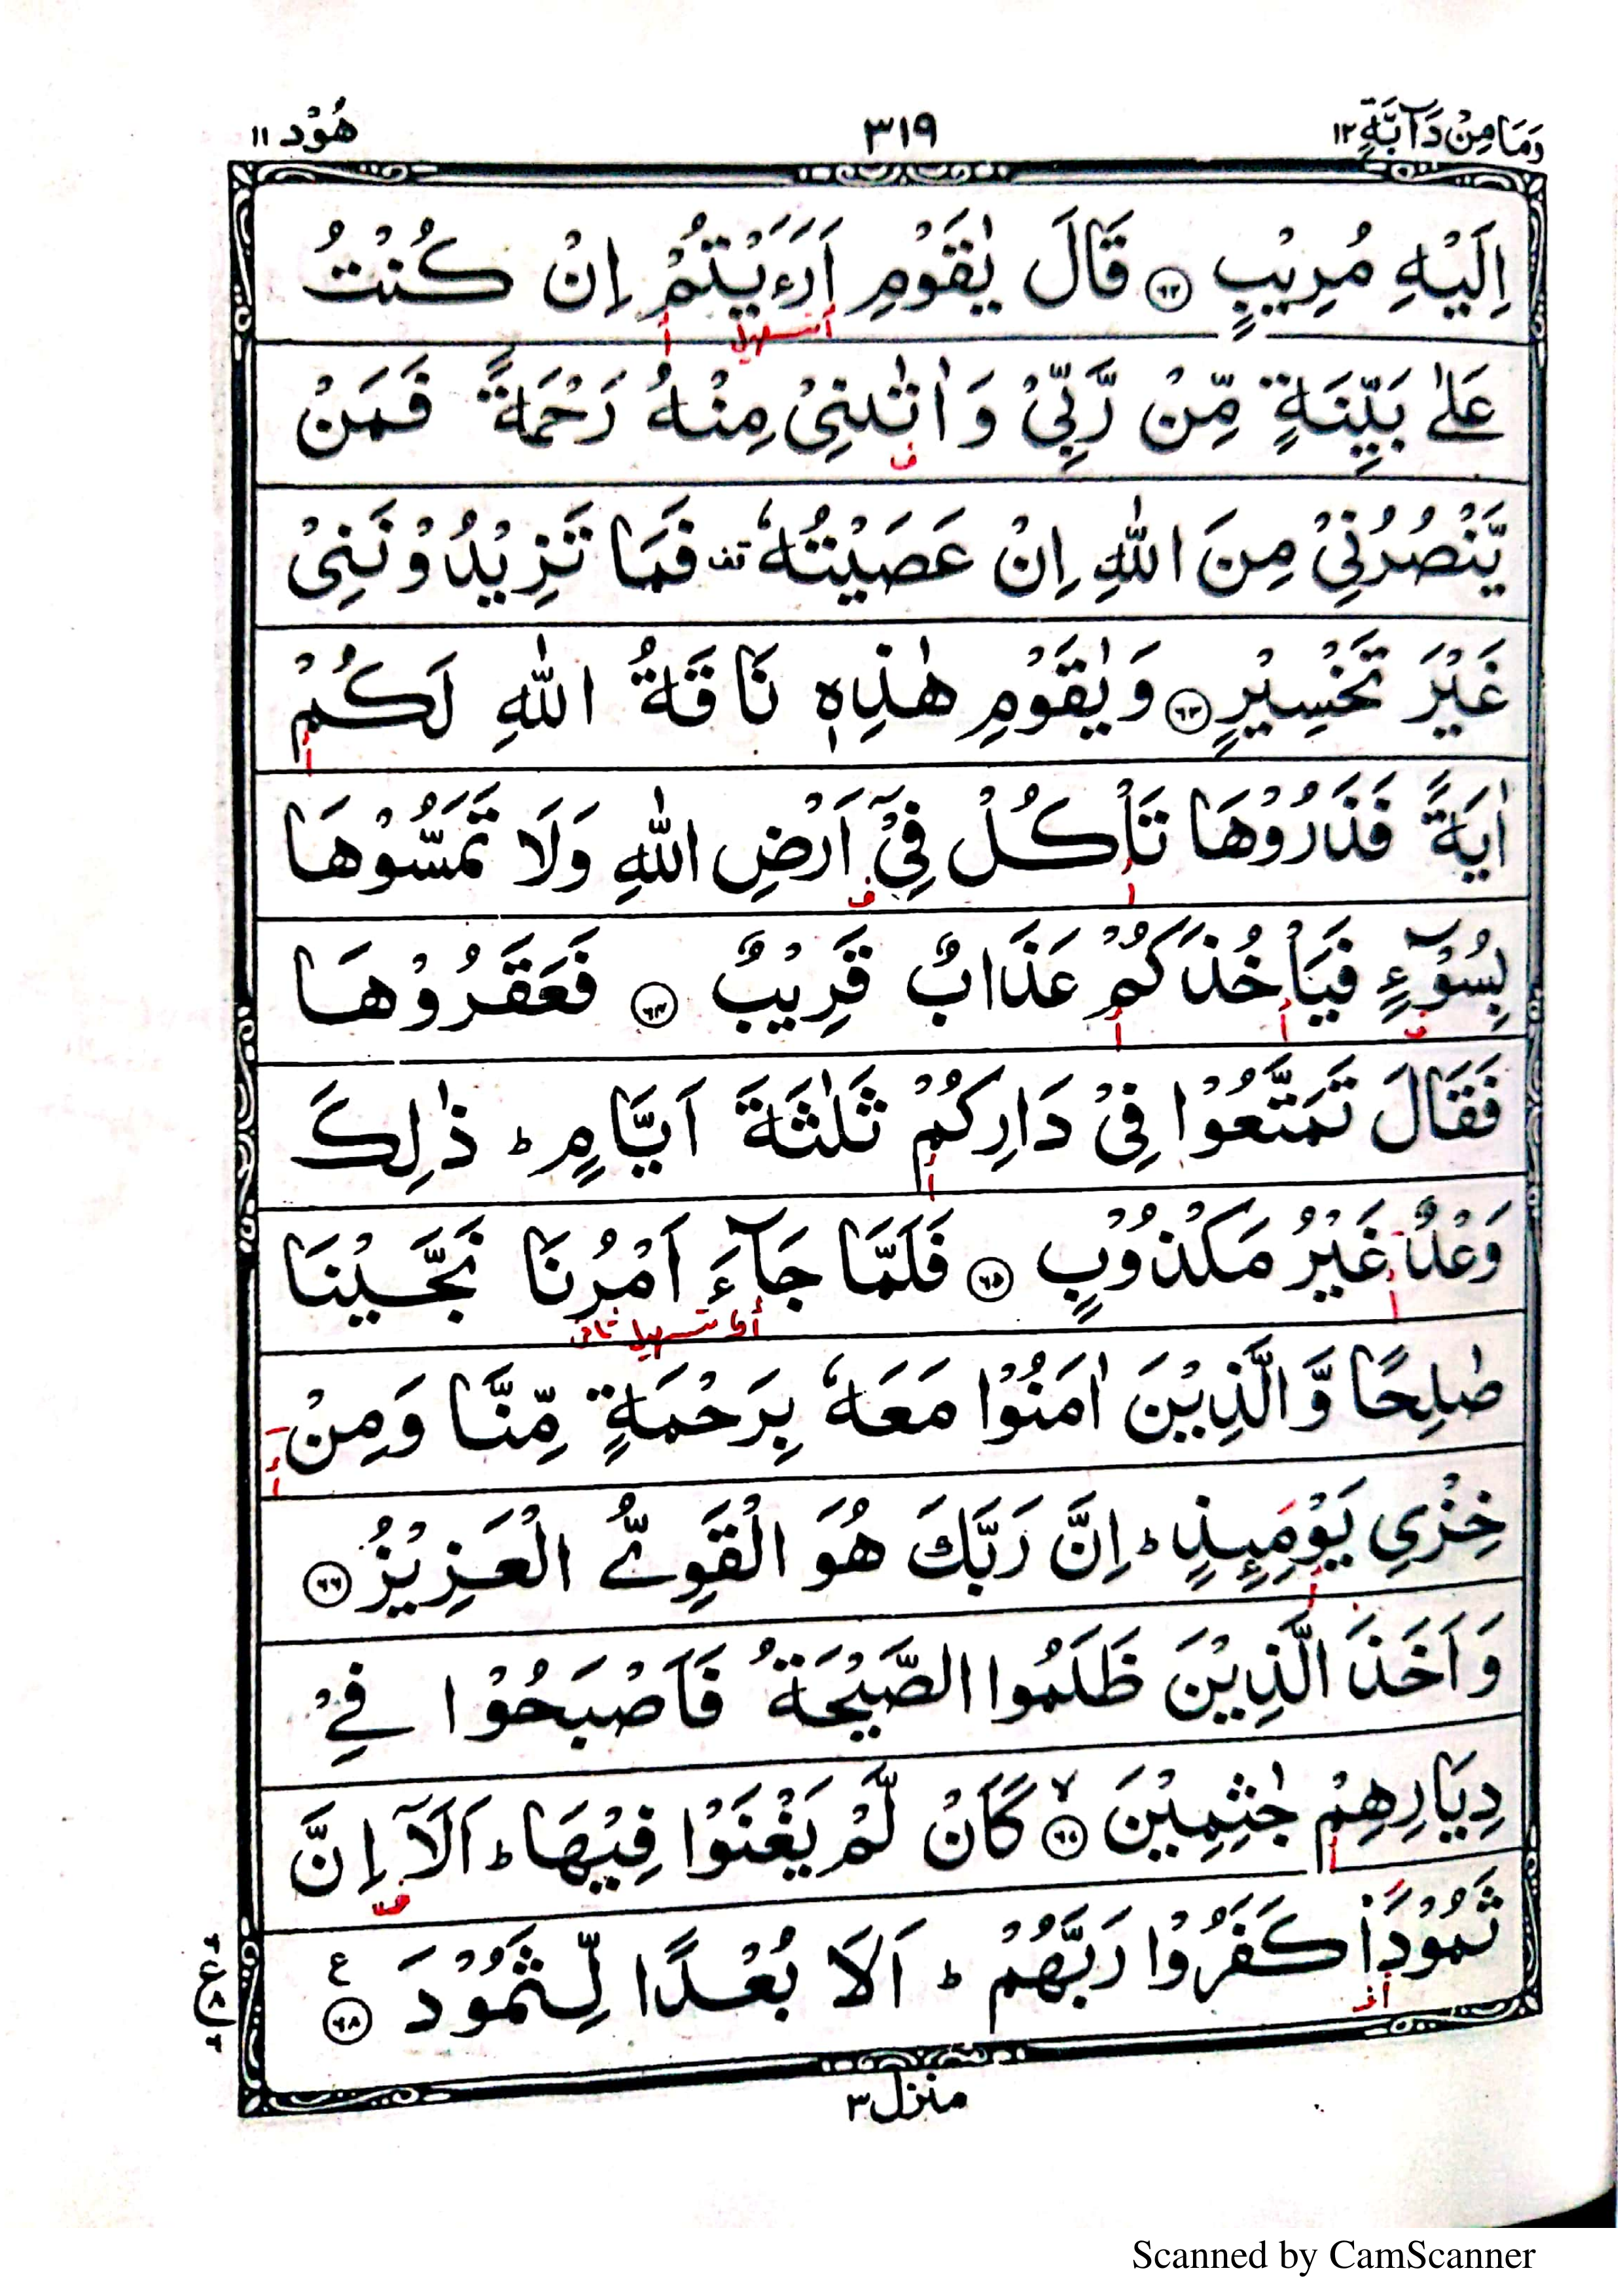 وَمَا مِنْ دَآبَّةٍ ١٢ ٣١٩ هُوْد ١١
اِلَيْهِ مُرِيْبٍ ﴿٦٢﴾ قَالَ يٰقَوْمِ اَرَءَيْتُمْ اِنْ كُنْتُ
أ تسهيل أ
عَلٰى بَيِّنَةٍ مِّنْ رَّبِّىْ وَاٰتٰىنِىْ مِنْهُ رَحْمَةً فَمَنْ
ف
يَّنْصُرُنِىْ مِنَ اللّٰهِ اِنْ عَصَيْتُهٗ قف فَمَا تَزِيْدُوْنَنِىْ
غَيْرَ تَخْسِيْرٍ ﴿٦٣﴾ وَيٰقَوْمِ هٰذِهٖ نَاقَةُ اللّٰهِ لَكُمْ
أ
اٰيَةً فَذَرُوْهَا تَاْكُلْ فِىْٓ اَرْضِ اللّٰهِ وَلَا تَمَسُّوْهَا
أ ف
بِسُوْٓءٍ فَيَاْخُذَكُمْ عَذَابٌ قَرِيْبٌ ﴿٦٤﴾ فَعَقَرُوْهَا
ف أ أ
فَقَالَ تَمَتَّعُوْا فِىْ دَارِكُمْ ثَلٰثَةَ اَيَّامٍ ؕ ذٰلِكَ
أ
وَعْدٌ غَيْرُ مَكْذُوْبٍ ﴿٦٥﴾ فَلَمَّا جَآءَ اَمْرُنَا نَجَّيْنَا
أ تسهيل ثانى
صٰلِحًا وَّالَّذِيْنَ اٰمَنُوْا مَعَهٗ بِرَحْمَةٍ مِّنَّا وَمِنْ
أ
خِزْىِ يَوْمَئِذٍ ؕ اِنَّ رَبَّكَ هُوَ الْقَوِىُّ الْعَزِيْزُ ﴿٦٦﴾
أ
وَاَخَذَ الَّذِيْنَ ظَلَمُوا الصَّيْحَةُ فَاَصْبَحُوْا فِىْ
دِيَارِهِمْ جٰثِمِيْنَ ۙ ﴿٦٧﴾ كَاَنْ لَّمْ يَغْنَوْا فِيْهَا ؕ اَلَآ اِنَّ
أ
ثَمُوْدَا۠ كَفَرُوْا رَبَّهُمْ ؕ اَلَا بُعْدًا لِّثَمُوْدَ ﴿٦٨﴾ ع
منزل ٣
Scanned by CamScanner